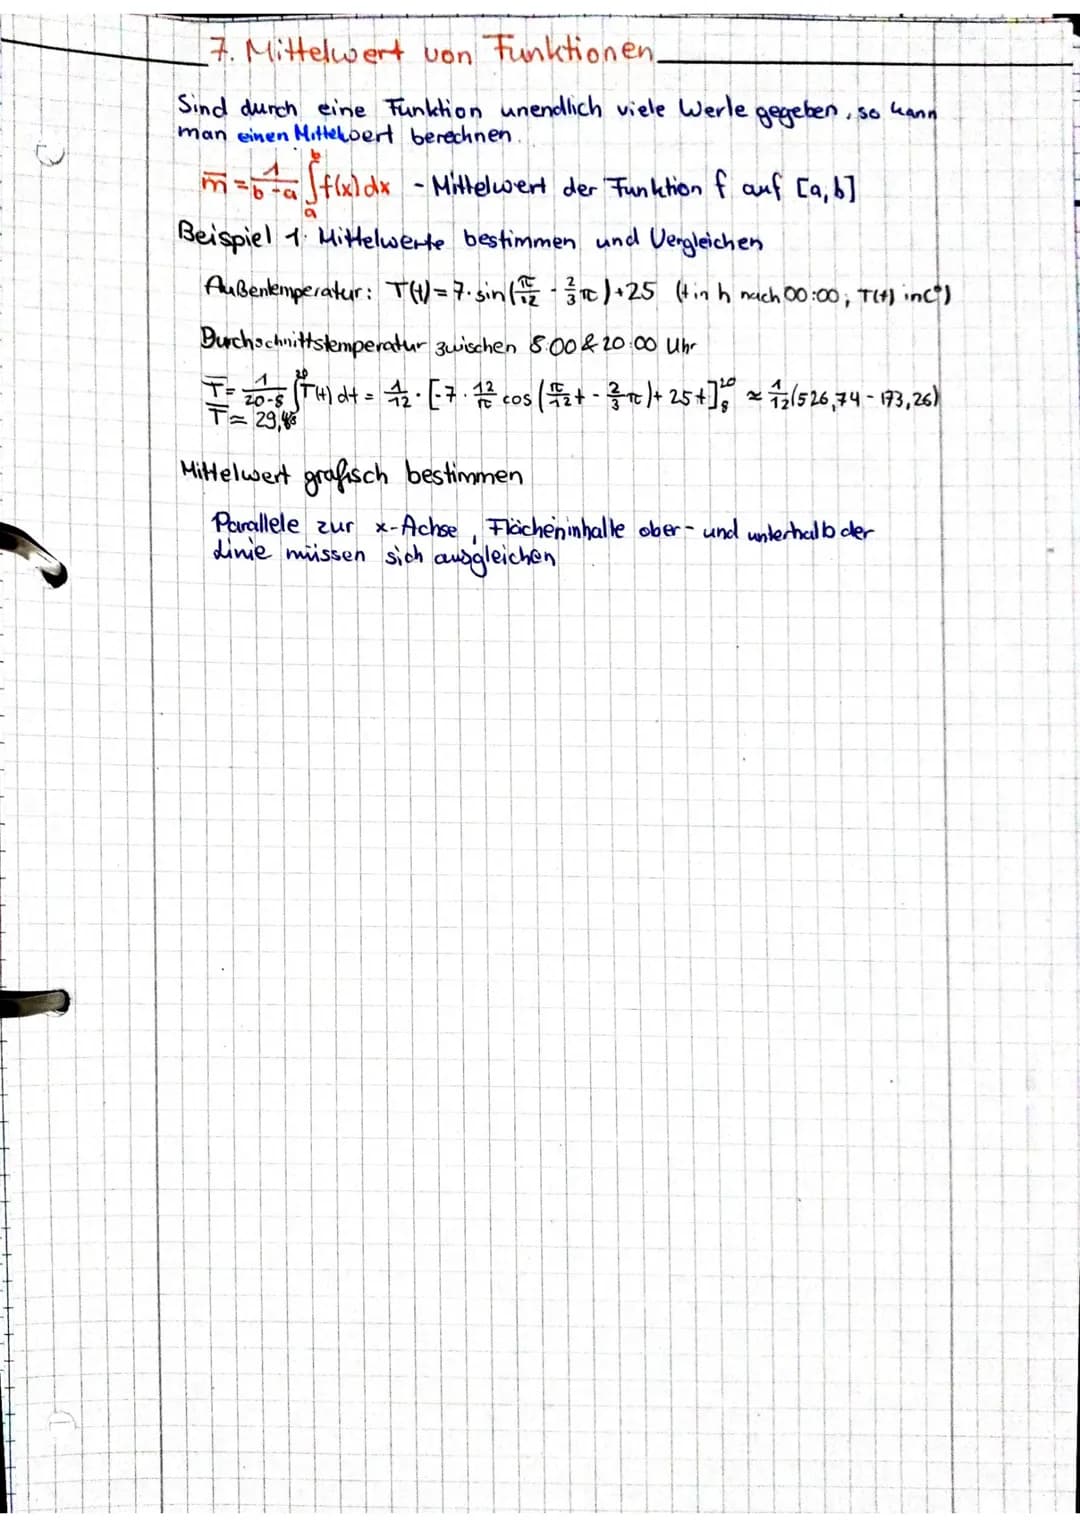 7. Mittelwert von Funktionen
Sind durch eine Funktion unendlich viele Werte gegeben, so kann
man einen Mittelwert berechnen.
m̅ = 1/(b-a) ∫_a^b f(x) dx - Mittelwert der Funktion f auf [a,b]
Beispiel 1: Mittelwerte bestimmen und Vergleichen
Außentemperatur: T(t) = 7·sin(π/12 - 2/3 π) + 25 (t in h nach 00:00; T(t) in C°)
Durchschnittstemperatur zwischen 8:00 & 20:00 Uhr
T̅ = 1/(20-8) ∫^20 T(t) dt = 1/12 · [-7 · 12/π cos(π/12 t - 2/3 π) + 25t]_8^20 ≈ 1/12 (526,74 - 173,26)
T̅ ≈ 29,46
Mittelwert grafisch bestimmen
Parallele zur x-Achse, Flächeninhalte ober- und unterhalb der
Linie müssen sich ausgleichen